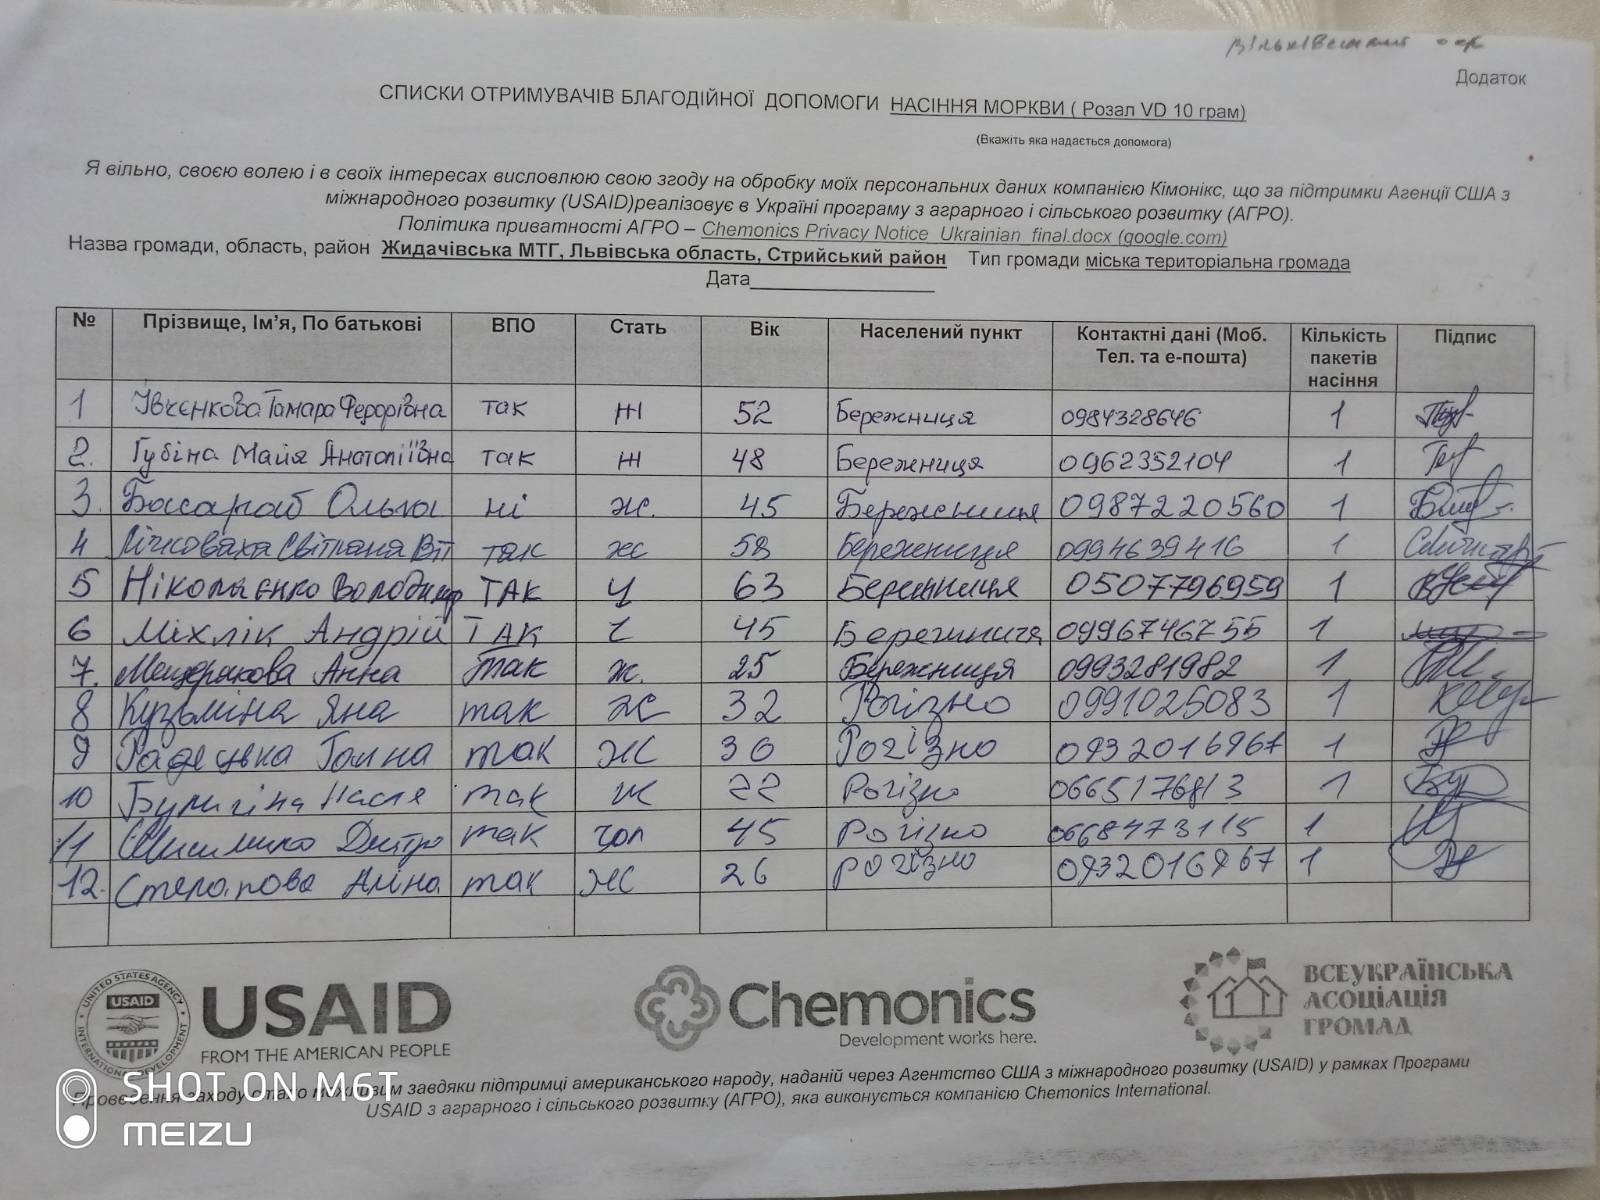 Додаток
СПИСКИ ОТРИМУВАЧІВ БЛАГОДІЙНОЇ ДОПОМОГИ НАСІННЯ МОРКВИ ( Розал VD 10 грам)
(Вкажіть яка надається допомога)
Я вільно, своєю волею і в своїх інтересах висловлюю свою згоду на обробку моїх персональних даних компанією Кімонікс, що за підтримки Агенції США з
міжнародного розвитку (USAID)реалізовує в Україні програму з аграрного і сільського розвитку (АГРО).
Політика приватності АГРО – Chemonics Privacy Notice_Ukrainian_final.docx (google.com)
Назва громади, область, район Жидачівська МТГ, Львівська область, Стрийський район Тип громади міська територіальна громада
Дата
№ Прізвище, Ім'я, По батькові ВПО Стать Вік Населений пункт Контактні дані (Моб. Тел. та е-пошта) Кількість пакетів насіння Підпис
1 Тамара так ж 52 Бережниця 0984328646 1
2. Губіна Майя Анатоліївна так ж 48 Бережниця 0962352104 1
3. Басараб Ольга ні ж. 45 Бережниця 0987220560 1
4 Світлана так ж 58 Бережниця 0994639416 1
5 Ніколаєнко Володимир ТАК Ч 63 Бережниця 0507796959 1
6 Міхлік Андрій ТАК Ч 45 Бережниця 0996746755 1
7. Мещерякова Анна так ж. 25 Бережниця 0993281982 1
8 Кузьміна Яна так Ж 32 Рогізно 0991025083 1
9 так Ж 30 Рогізно 0932016967 1
10 Настя так ж 22 Рогізно 0665176813 1
11 так чол 45 Рогізно 0668473115 1
12. Степанова Аліна так Ж 26 Рогізно 0932016967 1
UNITED STATES AGENCY
INTERNATIONAL DEVELOPMENT
USAID
USAID
FROM THE AMERICAN PEOPLE
Chemonics
Development works here.
ВСЕУКРАЇНСЬКА
АСОЦІАЦІЯ
ГРОМАД
Проведення заходу стало можливим завдяки підтримці американського народу, наданій через Агентство США з міжнародного розвитку (USAID) у рамках Програми
USAID з аграрного і сільського розвитку (АГРО), яка виконується компанією Chemonics International.
SHOT ON M6T
MEIZU